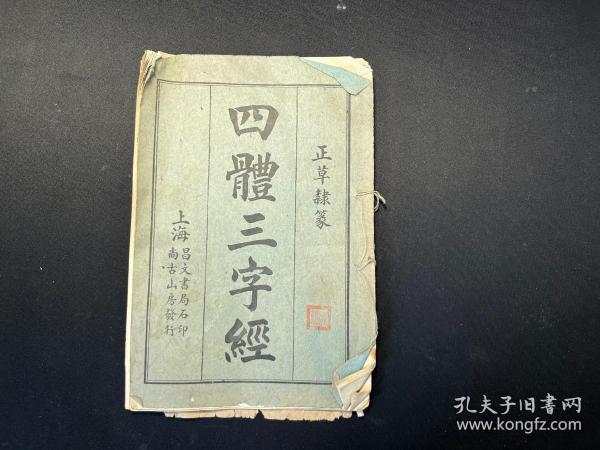 正草隸篆
四體三字經
上海
昌文書局石印
尚古山房發行
孔夫子旧书网
www.kongfz.com